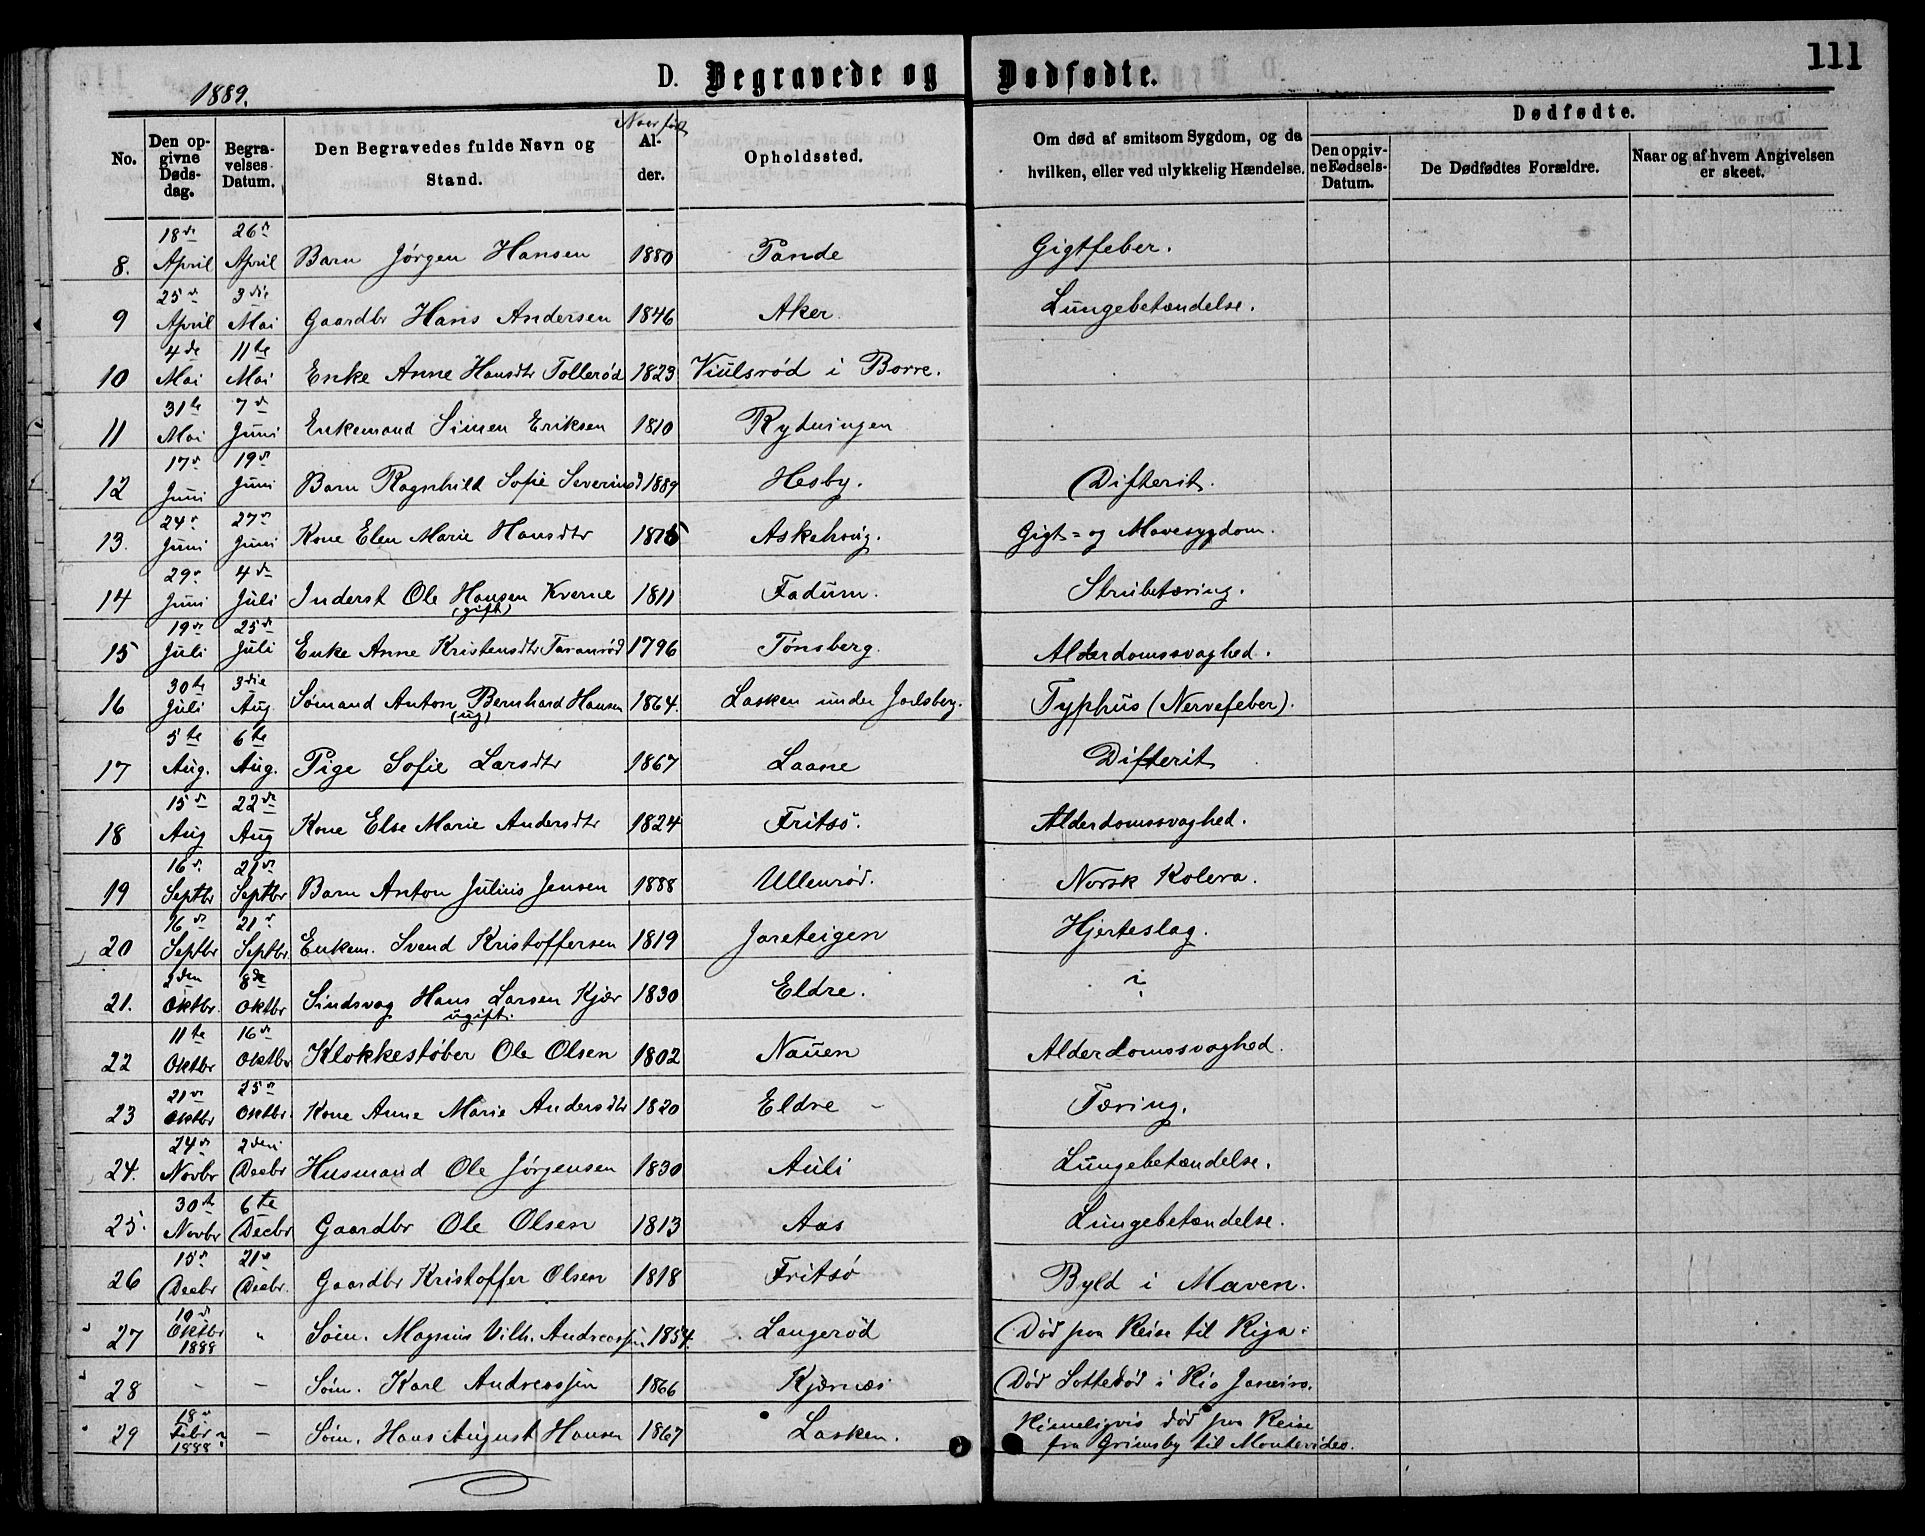 111
D. Begravede og Dødfødte.
1889.
No. Den opgivne Dødsdag. Begravelses Datum. Den Begravedes fulde Navn og Stand. Naar født Alder. Opholdssted. Om død af smitsom Sygdom, og da hvilken, eller ved ulykkelig Hændelse. Dødfødte. Den opgivne Fødsels-Datum. De Dødfødtes Forældre. Naar og af hvem Angivelsen er skeet.
8. 18de April 26de April Barn Jørgen Hansen 1880 Pande Gigtfeber.
9 25de April 3die Mai Gaardbr Hans Andersen 1846 Aker. Lungebetændelse.
10 4de Mai 11te Mai Enke Anne Hansdtr Tollerød 1823 Viulsrød i Borre.
11 31te Mai 7de Juni Enkemand Simen Eriksen 1810 Rydningen
12 17de Juni 19de Juni Barn Ragnhild Sofie Severinsd 1889 Hesby. Difterit.
13. 24de Juni 27de Juni Kone Elen Marie Hansdtr Askehoug. Gigt= og Mavesygdom.
14 29de Juni 4de Juli Inderst Ole Hansen Kverne (gift) 1811 Fadum. Strubetæring.
15 19de Juli 25de Juli Enke Anne Kristensdtr Taranrød 1796 Tønsberg. Alderdomssvaghed.
16 30te Juli 3die Aug. Sømand Anton Bernhard Hansen (ug) 1864. Lasken under Jarlsberg. Typhus (Nervefeber).
17 5te Aug. 6te Aug. Pige Sofie Larsdtr 1867 Laane Difterit
18 15de Aug 22de Aug Kone Else Marie Andersdtr 1824 Fritsø. Alderdomssvaghed.
19 16de Septbr 21de Septbr Barn Anton Julius Jensen 1888 Ullenrød. Norsk Kolera.
20 16de Septbr 21de Septbr. Enkem. Svend Kristoffersen 1819 Jareteigen Hjerteslag.
21. 2den Oktbr. 8de Oktbr Sindsvag Hans Larsen Kjær ugift. 1830 Eldre. ?
22 11te Oktbr 16de Oktbr Klokkestøber Ole Olsen 1802 Nauen Alderdomssvaghed.
23 21de Oktbr 25de Oktbr. Kone Anne Marie Andersdtr 1820 Eldre - Tæring.
24. 24de Novbr 2den Decbr Husmand Ole Jørgensen 1830 Auli Lungebetændelse.
25. 30te Novbr 6te Decbr Gaardbr Ole Olsen 1813 Aas Lungebetændelse.
26 15de Decbr 21de Decbr. Gaardbr Kristoffer Olsen 1818 Fritsø Byld i Maven.
27 10de Oktbr 1888 " Søm. Magnus Vilh. Andreassen 1854. Langerød Død paa Reise til Riga.
28 - - Søm. Karl Andreassen 1866 Kjærnæs Død Lottedød i Rio Janeiro.
29 18de Febr ? 1888 - Søm. Hans August Hansen 1867 Lasken. Rimeligvis død paa Reise
fra Grimsby til Montevideo.